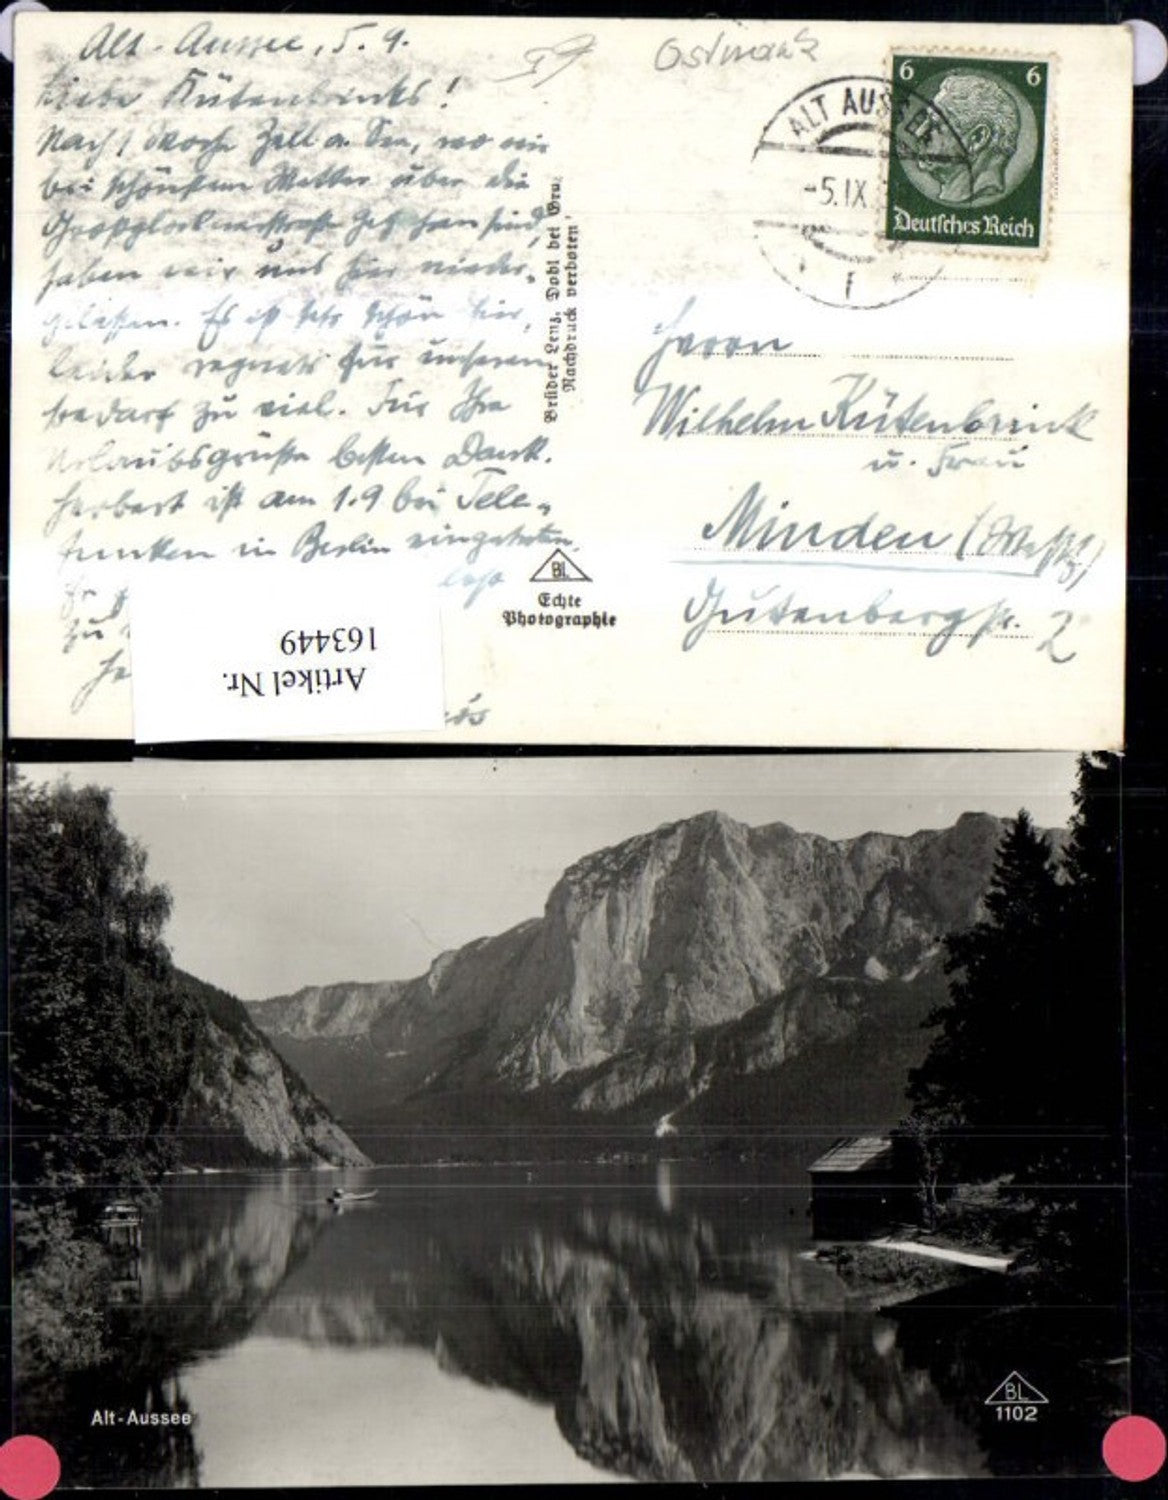 Alt-Aussee, 5. 9.
59
Ostmark
Liebe Kütenbrinks!
Nach 1 Woche Zell a. See, wo wir
bei schönstem Wetter über die
Großglocknerstraße gefahren sind,
haben wir uns hier nieder-
gelassen. Es ist sehr schön hier,
leider regnets für unseren
bedarf zu viel. Für Ihre
Urlaubsgrüße besten Dank.
Herbert ist am 1.9 bei Tele-
funken in Berlin eingetreten.
zu
Brüder Lenz, Dobl bei Graz
Nachdruck verboten
BL
Echte
Photographie
6 6
Deutsches Reich
ALT AUSSEE
-5. IX.
Herrn
Wilhelm Kütenbrink
u. Frau
Minden (Westf)
Gutenbergstr. 2
Artikel Nr.
163449
Alt-Aussee
BL
1102